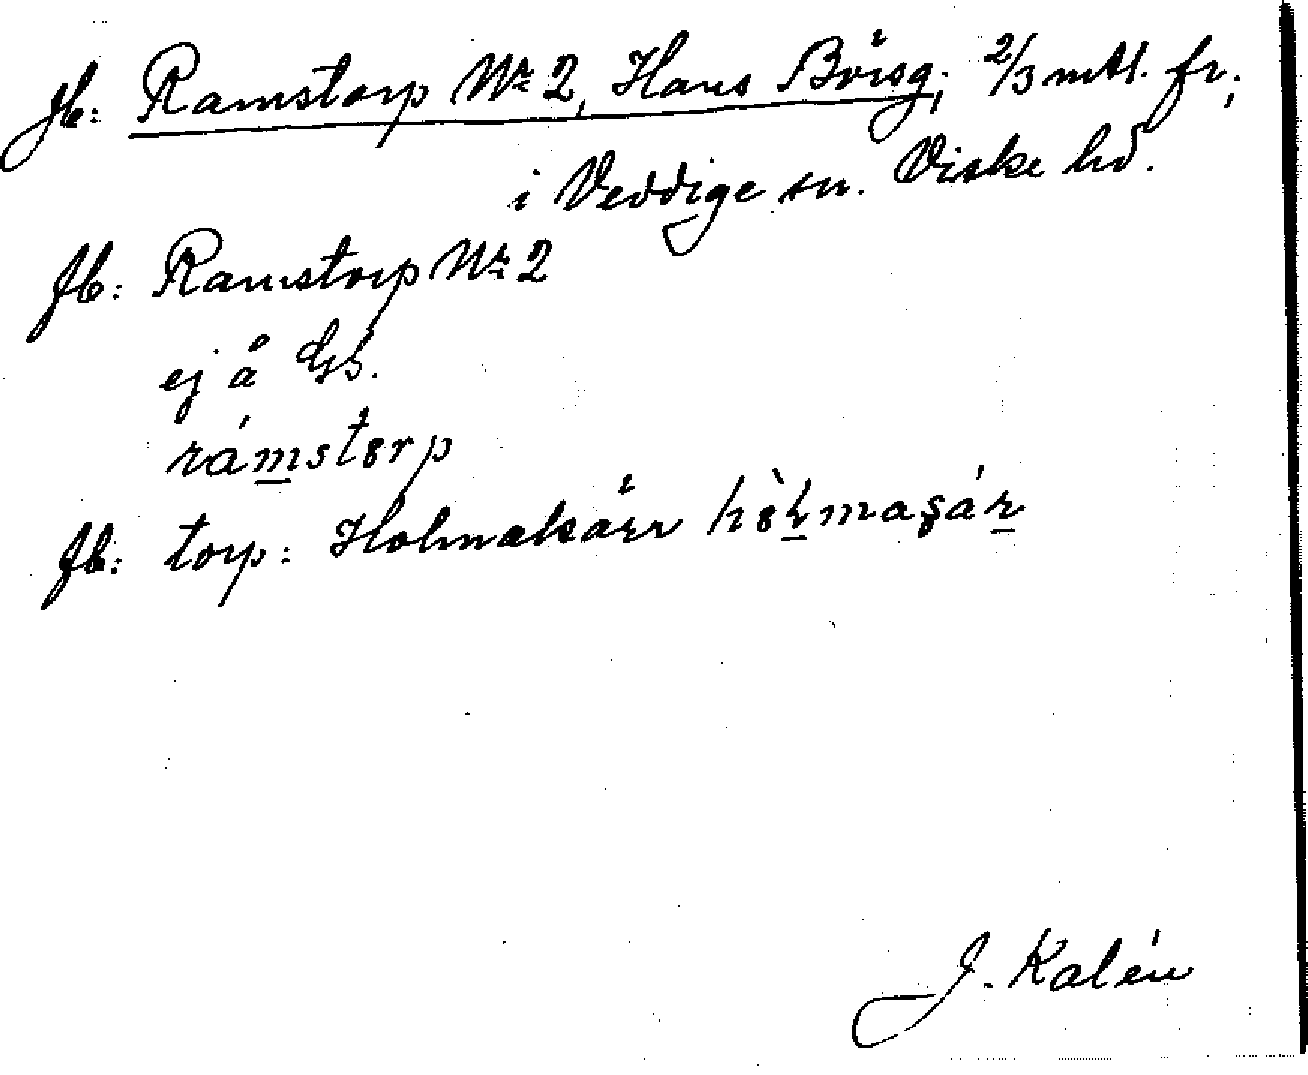 Jb: Ramstorp Nr 2, Hans Börsg; 2/3 mtl. fr;
i Veddige sn. Viske hd.
fb: Ramstorp Nr 2
ej å Gs.
rámstorp
fb: torp: Holmakärr
J. Kalén